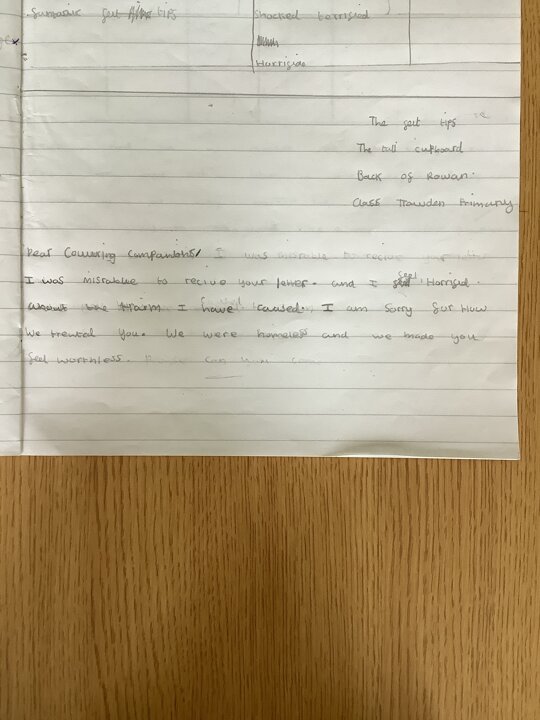 felt tips
Shocked terrisied
Horriside
The felt tips
The tall cupboard
Back of Rowan.
Class Trawden Primary
Dear Cowering Companions, I was misrable to recive
I was misrable to recive your letter. and I feel Horrisid.
about the Hraim I have caused. I am Sorry for How
We trental You. We were homeless and we made you
feel worthless.